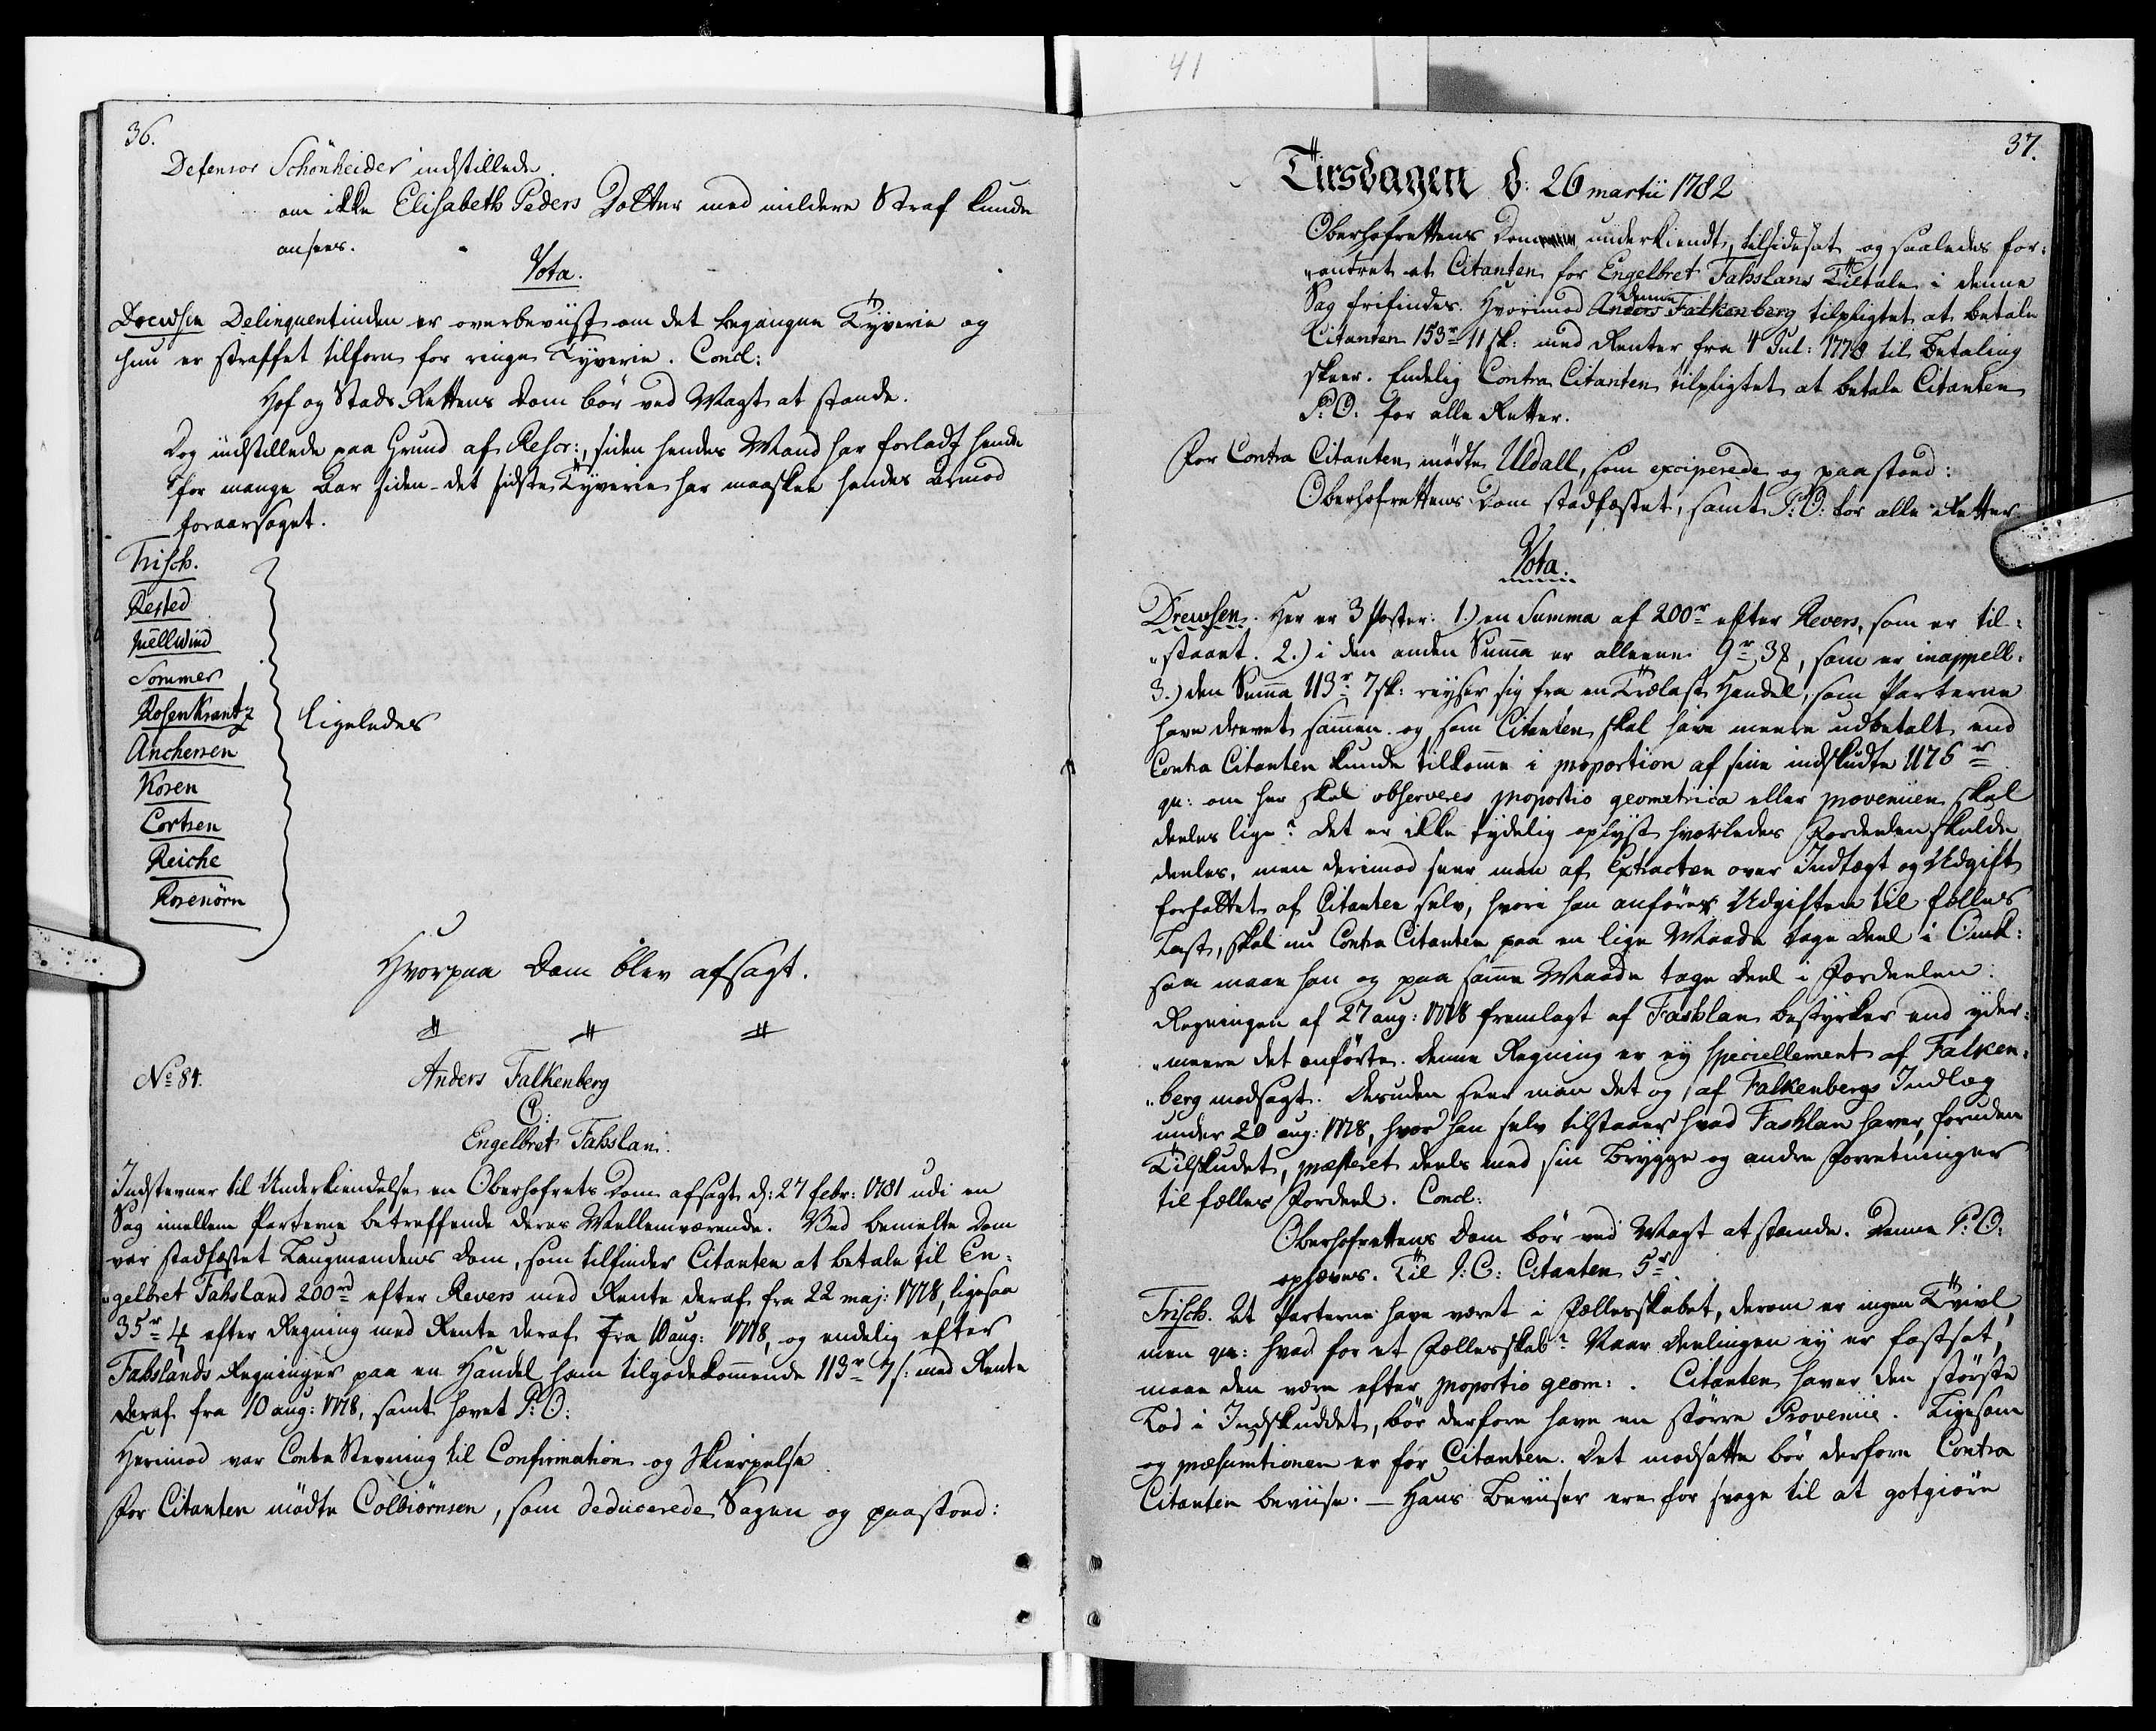 41
36.
Defensor Schönheider indstillede
om ikke Elisabeth Peders Datter med mildere Straf kunde
ansees.
Vota.
Drewsen Delinquentinden er overbeviist om det begangne Tyverie og
hun er straffet tilforn for ringe Tyverie. Concl:
Hof og Stads Rettens Dom bör ved Magt at stande.
Dog indstillede paa Grund af Rescr:, siden hendes Mand har forladt hende
for mange Aar siden - det sidste Tyverie har maaskee hendes Armod
foraarsaget.
Trisch.
Rested
Mellwind
Sommer
Rosenkrantz ligeledes
Anchersen
Kosen
Cortsen
Reiche
Rosenörn
Hvorpaa Dom blev afsagt.
No 84. Anders Falkenberg
C:
Engelbret Fahslan:
Indstevner til Underkiendelse en Oberhofrets Dom afsagt d: 27 febr: 1781 udi en
Sag imellem Parterne betreffende deres Mellemværende. Ved bemelte Dom
var stadfæstet Laugmandens Dom, som tilfinder Citanten at betale til En-
gelbret Fahsland 200rd efter Revers med Rente deraf fra 22 maj: 1778, ligesaa
35r 4 efter Regning med Rente deraf fra 10 aug: 1778, og endelig efter
Fahslands Regninger paa en Handel ham tilgodekommende 113r 7s: med Rente
deraf fra 10 aug: 1778, samt hævet P: O:
Herimod var Contra Stevning til Confirmation og Skierpelse.
For Citanten mödte Colbiörnsen, som deducerede Sagen og paastoed:
37.
Tirsdagen d: 26 martii 1782
Oberhofrettens Dom underkiendt, tilsidesat og saaledes for-
andret at Citanten for Engelbret Fahslans Tiltale i denne
Sag frifindes. Hvorimod denne Anders Falkenberg tilpligtet at betale
Citanten 153r 11 sk: med Renter fra 4 Jul: 1778 til Betaling
skeer. Endelig Contra Citanten tilpligtet at betale Citanten
P: O: for alle Retter.
For Contra Citanten mödte Uldall, som exciperede og paastoed:
Oberhofrettens Dom stadfæstet, samt P: O: for alle Retter.
Vota.
Drewsen. Her er 3 Poster: 1.) en Summa af 200r efter Revers, som er til-
staaet. 2.) i den anden Summa er alleene 9r 3s, som er inappell:
3.) den Summa 113r 7 sk: reyser sig fra en Trælast Handel, som Parterne
have drevet sammen og som Citanten skal have meere udbetalt end
Contra Citanten kunde tilkomme i proportion af sine indskudte 1176r
qu: om her skal observeres proportio geometrica eller provenuen skal
deeles lige? Det er ikke tydelig oplyst hvorledes Fordeelen skulde
deeles, men derimod seer man af Extracten over Indtægt og Udgift
forfattet af Citanten selv, hvori han anförer Udgiften til fælles
Last, skal nu Contra Citanten paa en lige Maade tage Deel i Omk:
saa maae han og paa samme Maade tage Deel i Fordeelen:
Regningen af 27 aug: 1778 fremlagt af Faahlan bestyrker end yder-
meere det anförte. Denne Regning er ey speciellement af Falken-
berg modsagt. Desuden seer man det og af Falkenbergs Indlæg
under 20 aug: 1778, hvor han selv tilstaaer hvad Faahlan haver, foruden
Tilskudet, præsteret deels med sin Brygge og andre Forretninger
til fælles Fordeel. Concl:
Oberhofrettens Dom bör ved Magt at stande. Denne P: O:
ophæves. Til J: C: Citanten 5r
Trisch. At Parterne have været i Fællesskabet, derom er ingen Tvivl,
men qu: hvad for et Fællesskab? Naar deelingen ey er fastsat,
maae den være efter proportio geom: . Citanten haver den störste
Lod i Indskuddet, bör derfore have en större Provenue. Ligesom
og præsumtionen er for Citanten. Det modsatte bör derfore Contra
Citanten beviise. - Hans Beviiser ere for svage til at gotgiöre